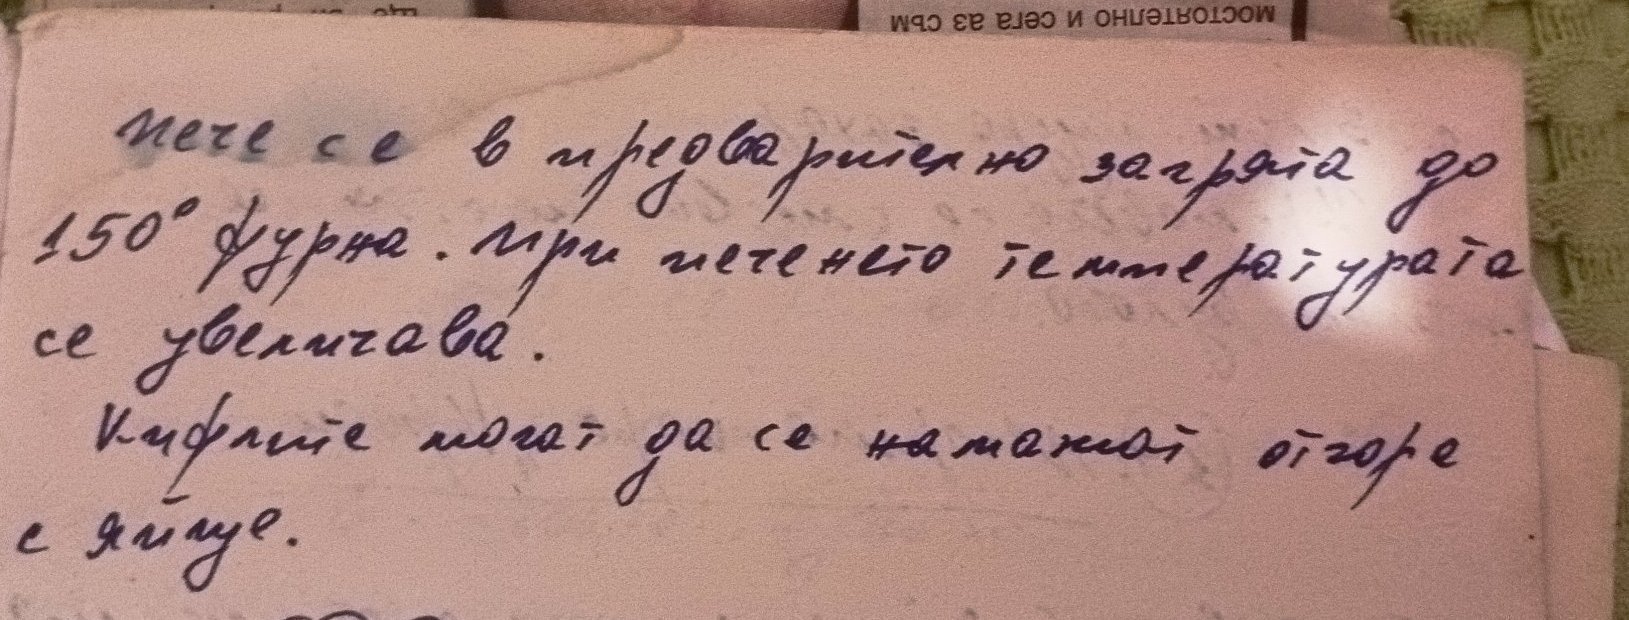 мостоятелно и сега аз съм
Пече се в предварително загрята до
150° фурна. При печенето температурата
се увеличава.
Кифлите могат да се намажат отгоре
с яйце.